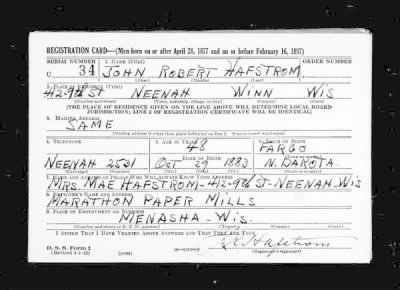 REGISTRATION CARD—(Men born on or after April 28, 1877 and on or before February 16, 1897)
SERIAL NUMBER 1. NAME (Print) ORDER NUMBER
U 34 JOHN ROBERT HAFSTROM
2. PLACE OF RESIDENCE (Print)
412-9th ST NEENAH WINN WIS
(Number and street) (Town, township, village, or city) (County) (State)
[THE PLACE OF RESIDENCE GIVEN ON THE LINE ABOVE WILL DETERMINE LOCAL BOARD
JURISDICTION; LINE 2 OF REGISTRATION CERTIFICATE WILL BE IDENTICAL]
3. MAILING ADDRESS
SAME
(Mailing address if other than place indicated on line 2. If same insert word same)
4. TELEPHONE 5. AGE IN YEARS 6. PLACE OF BIRTH
48 FARGO
DATE OF BIRTH (Town or county)
NEENAH 2501 OCT 29 1883 N. DAKOTA
(Exchange) (Number) (Mo.) (Day) (Yr.) (State or country)
7. NAME AND ADDRESS OF PERSON WHO WILL ALWAYS KNOW YOUR ADDRESS
MRS. MAE HAFSTROM-412-9th ST-NEENAH-WIS
8. EMPLOYER'S NAME AND ADDRESS
MARATHON PAPER MILLS
9. PLACE OF EMPLOYMENT OR BUSINESS
MENASHA-WIS.
(Number and street or R. F. D. number) (Town) (County) (State)
I AFFIRM THAT I HAVE VERIFIED ABOVE ANSWERS AND THAT THEY ARE TRUE.
D. S. S. Form 1 J. R. Hafstrom
(Revised 4-1-42) (over) (Registrant's signature)